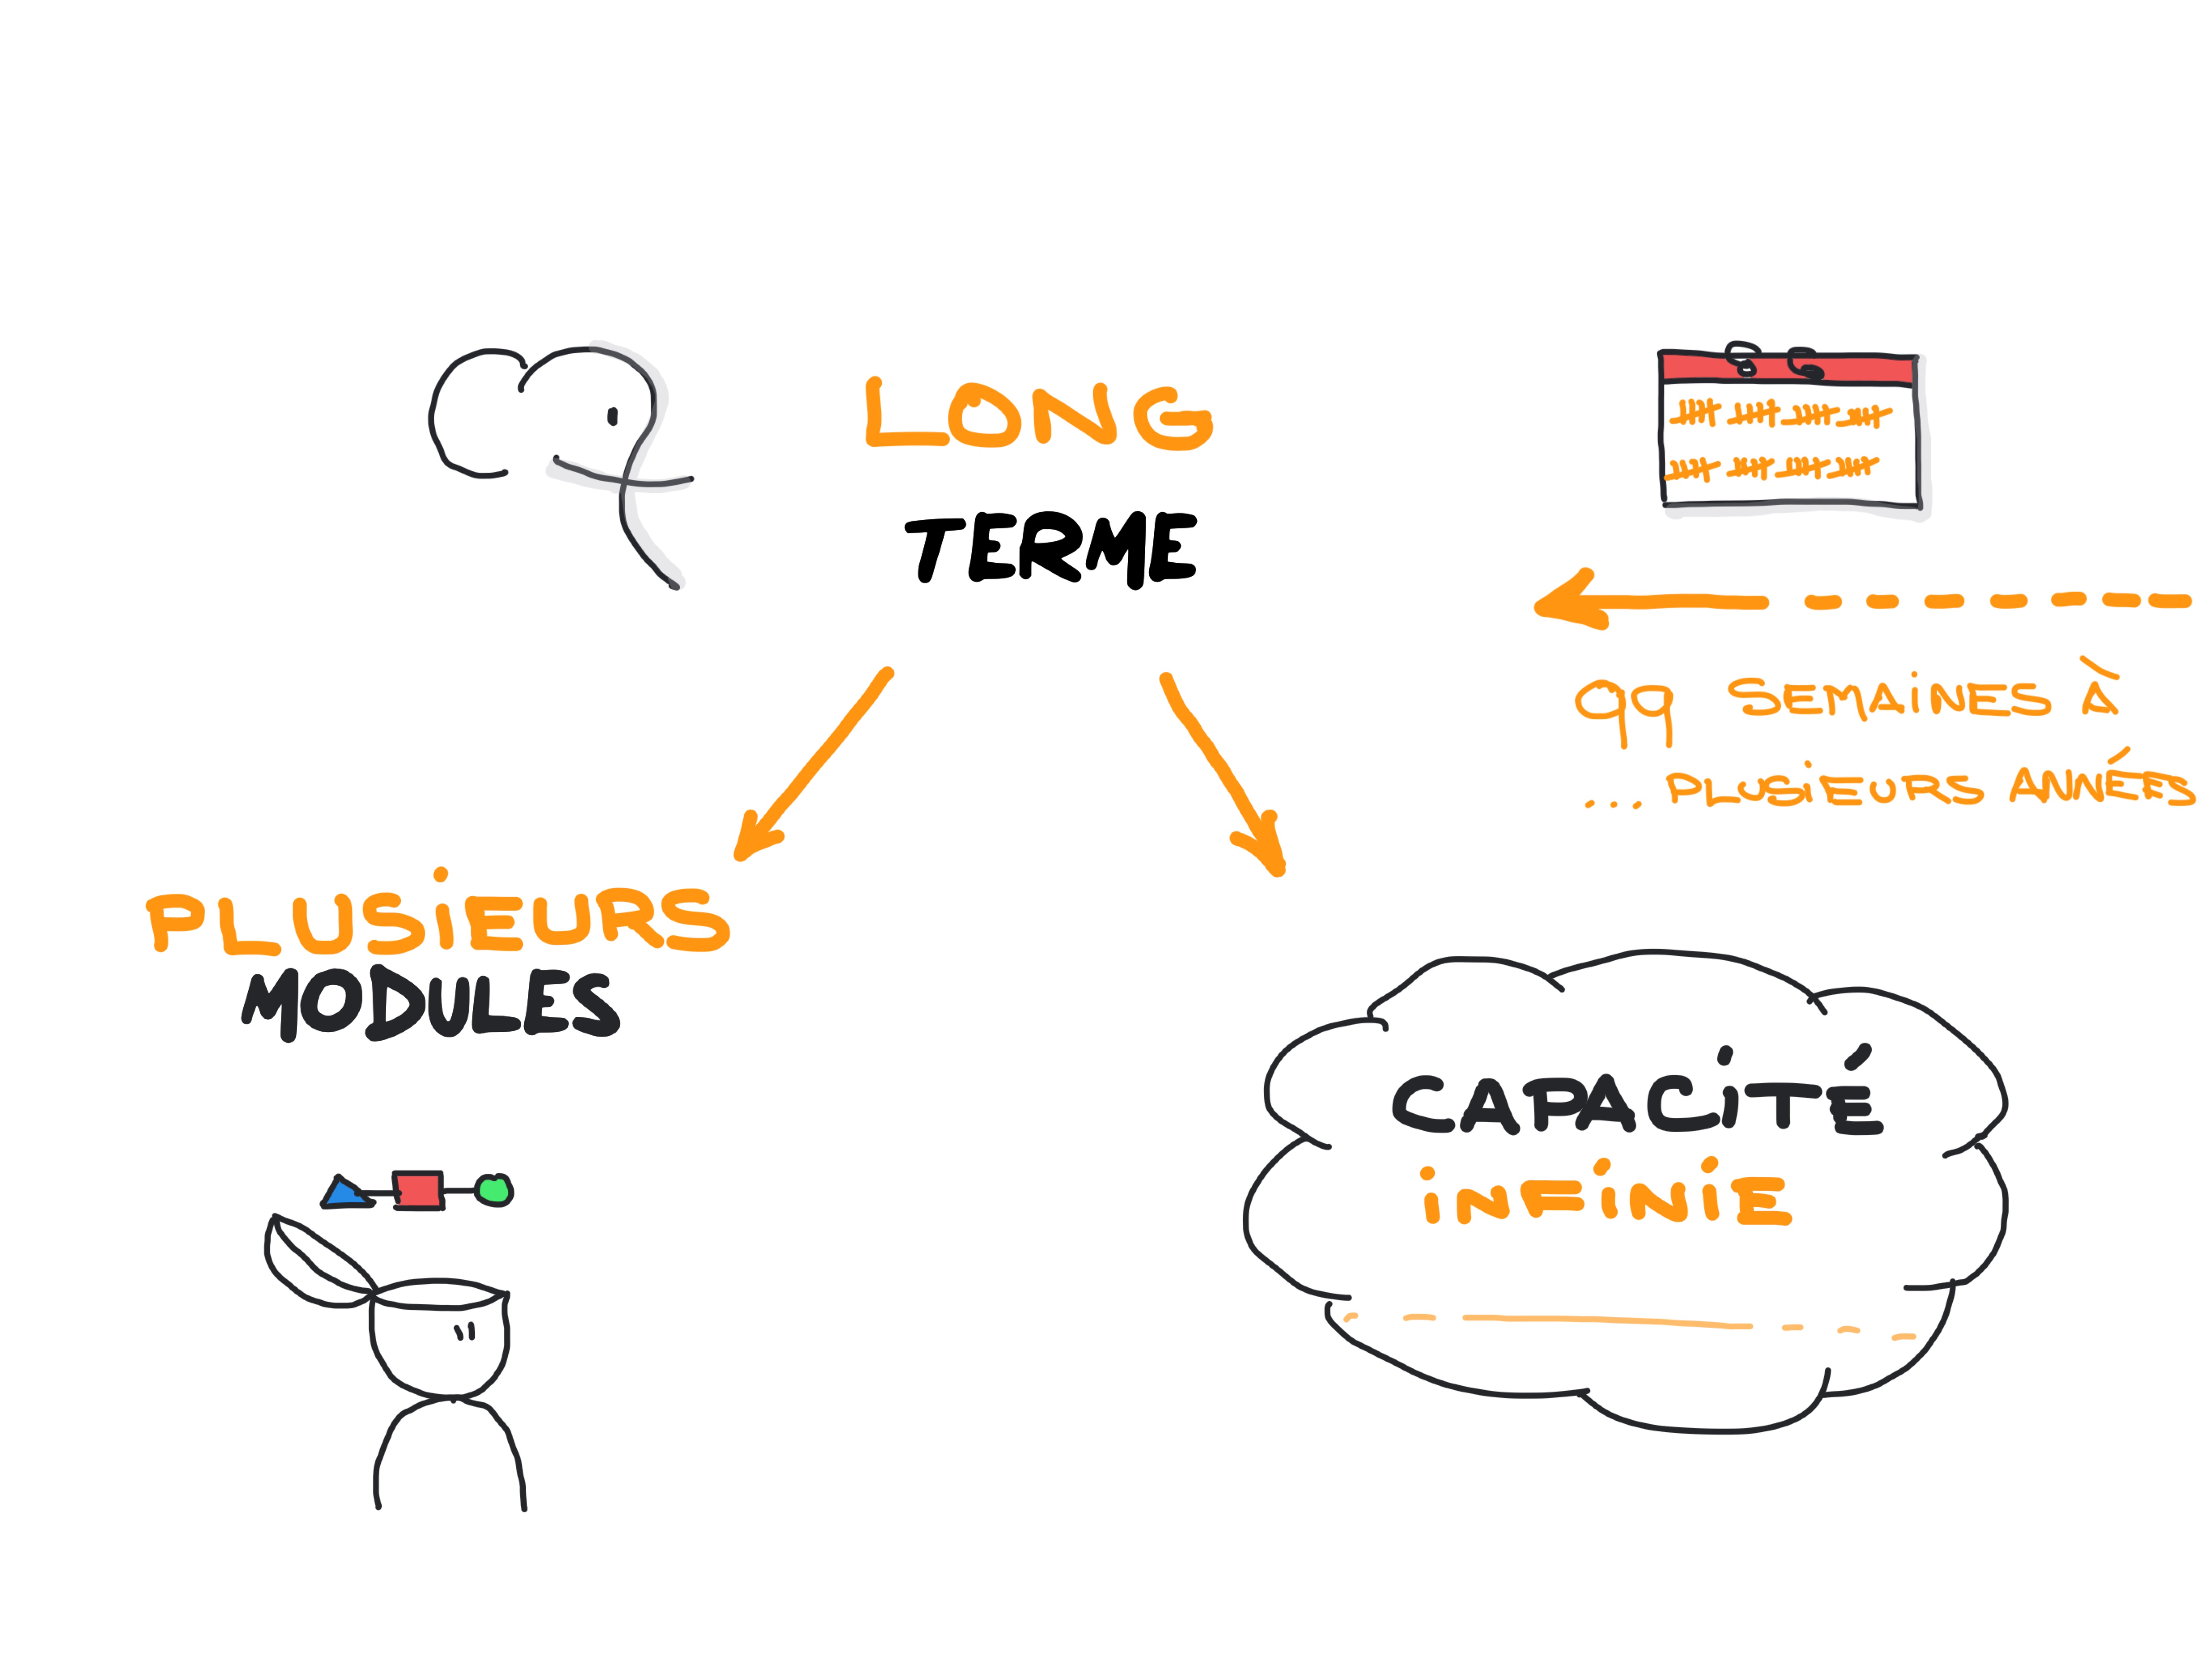 LONG
TERME
qq SEMAiNES À
... PLUSiEURS ANNÉES
PLUSiEURS
MODULES
CAPACiTÉ
iNFiNiE